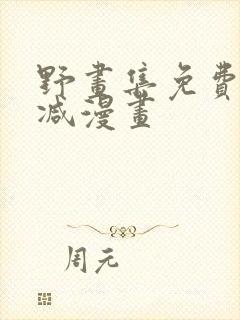 野畫集免費
减漫畫
周元